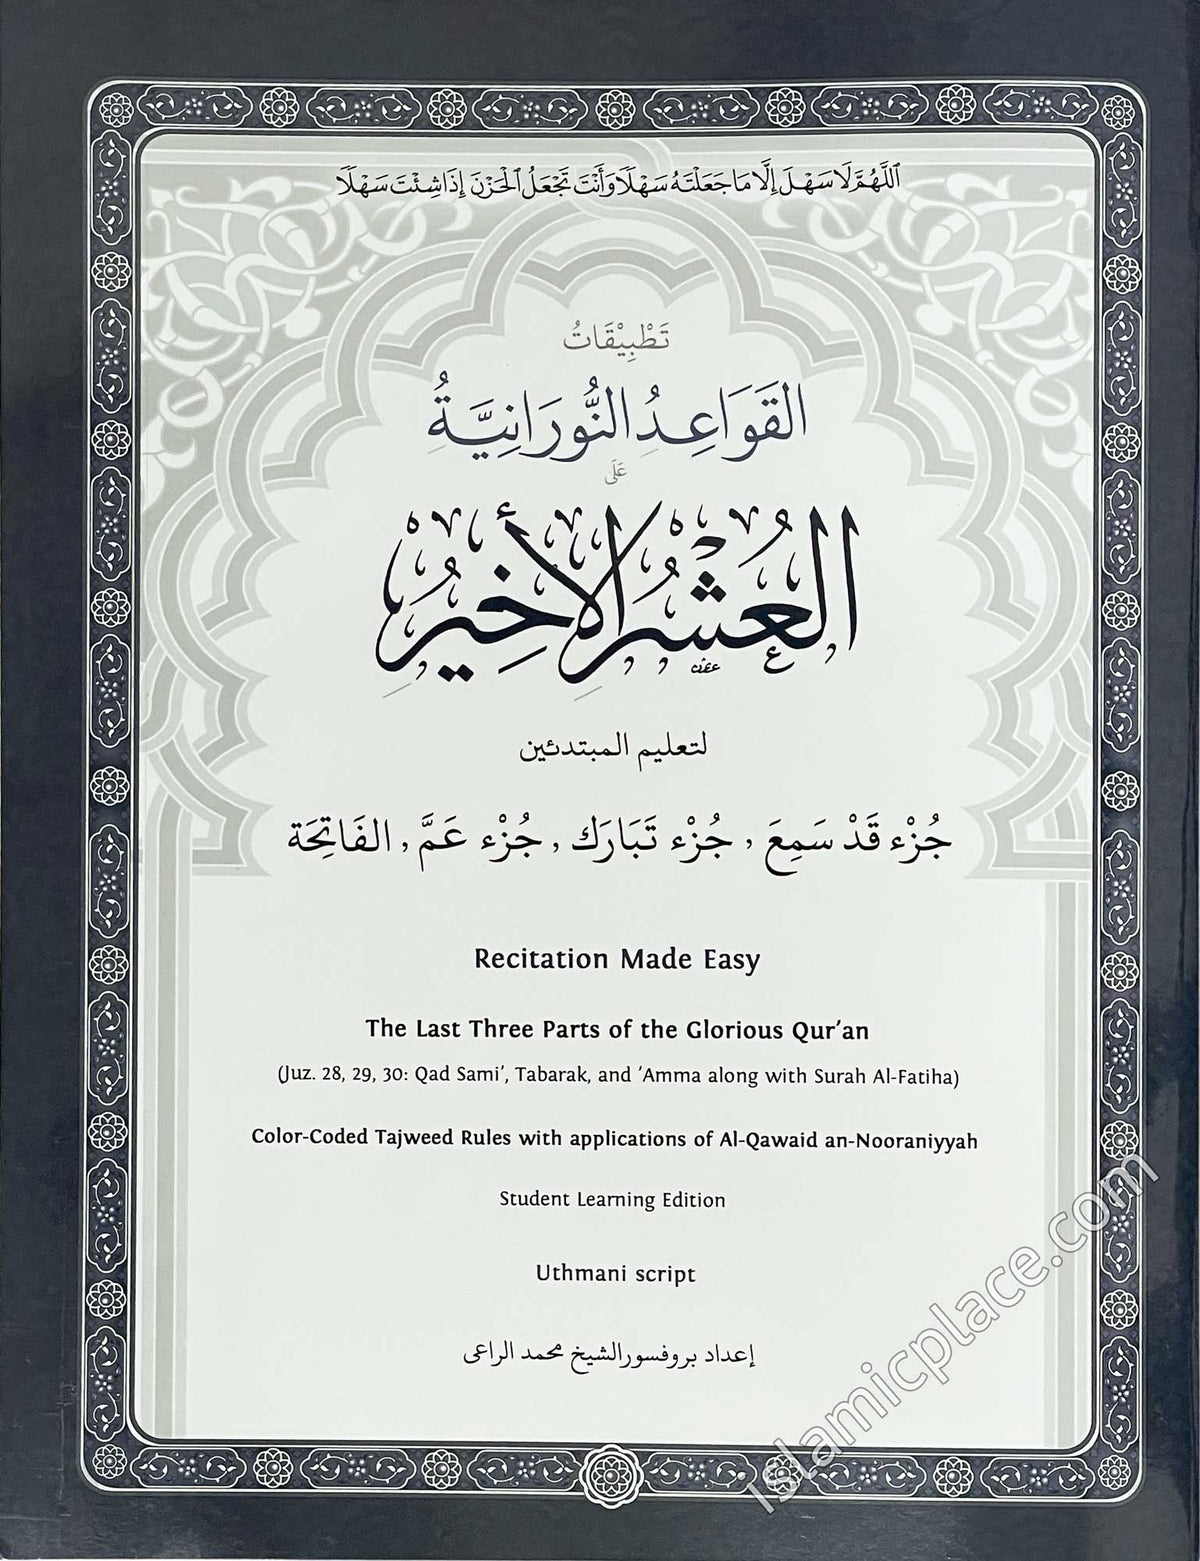 اَللَّهُمَّ لَا سَهْلَ إِلَّا مَا جَعَلْتَهُ سَهْلًا وَأَنْتَ تَجْعَلُ الْحَزْنَ إِذَا شِئْتَ سَهْلًا
تَطْبِيْقَاتُ
القَوَاعِدُ النُّورَانِيَّةُ
عَلَى
العُشْرُ الأَخِيْرُ
لتعليم المبتدئين
جُزْء قَدْ سَمِعَ , جُزْء تَبَارَك , جُزْء عَمَّ , الفَاتِحَة
Recitation Made Easy
The Last Three Parts of the Glorious Qur’an
(Juz. 28, 29, 30: Qad Sami’, Tabarak, and ’Amma along with Surah Al-Fatiha)
Color-Coded Tajweed Rules with applications of Al-Qawaid an-Nooraniyyah
Student Learning Edition
Uthmani script
إعداد بروفسور الشيخ محمد الراعى
Islamicplace.com